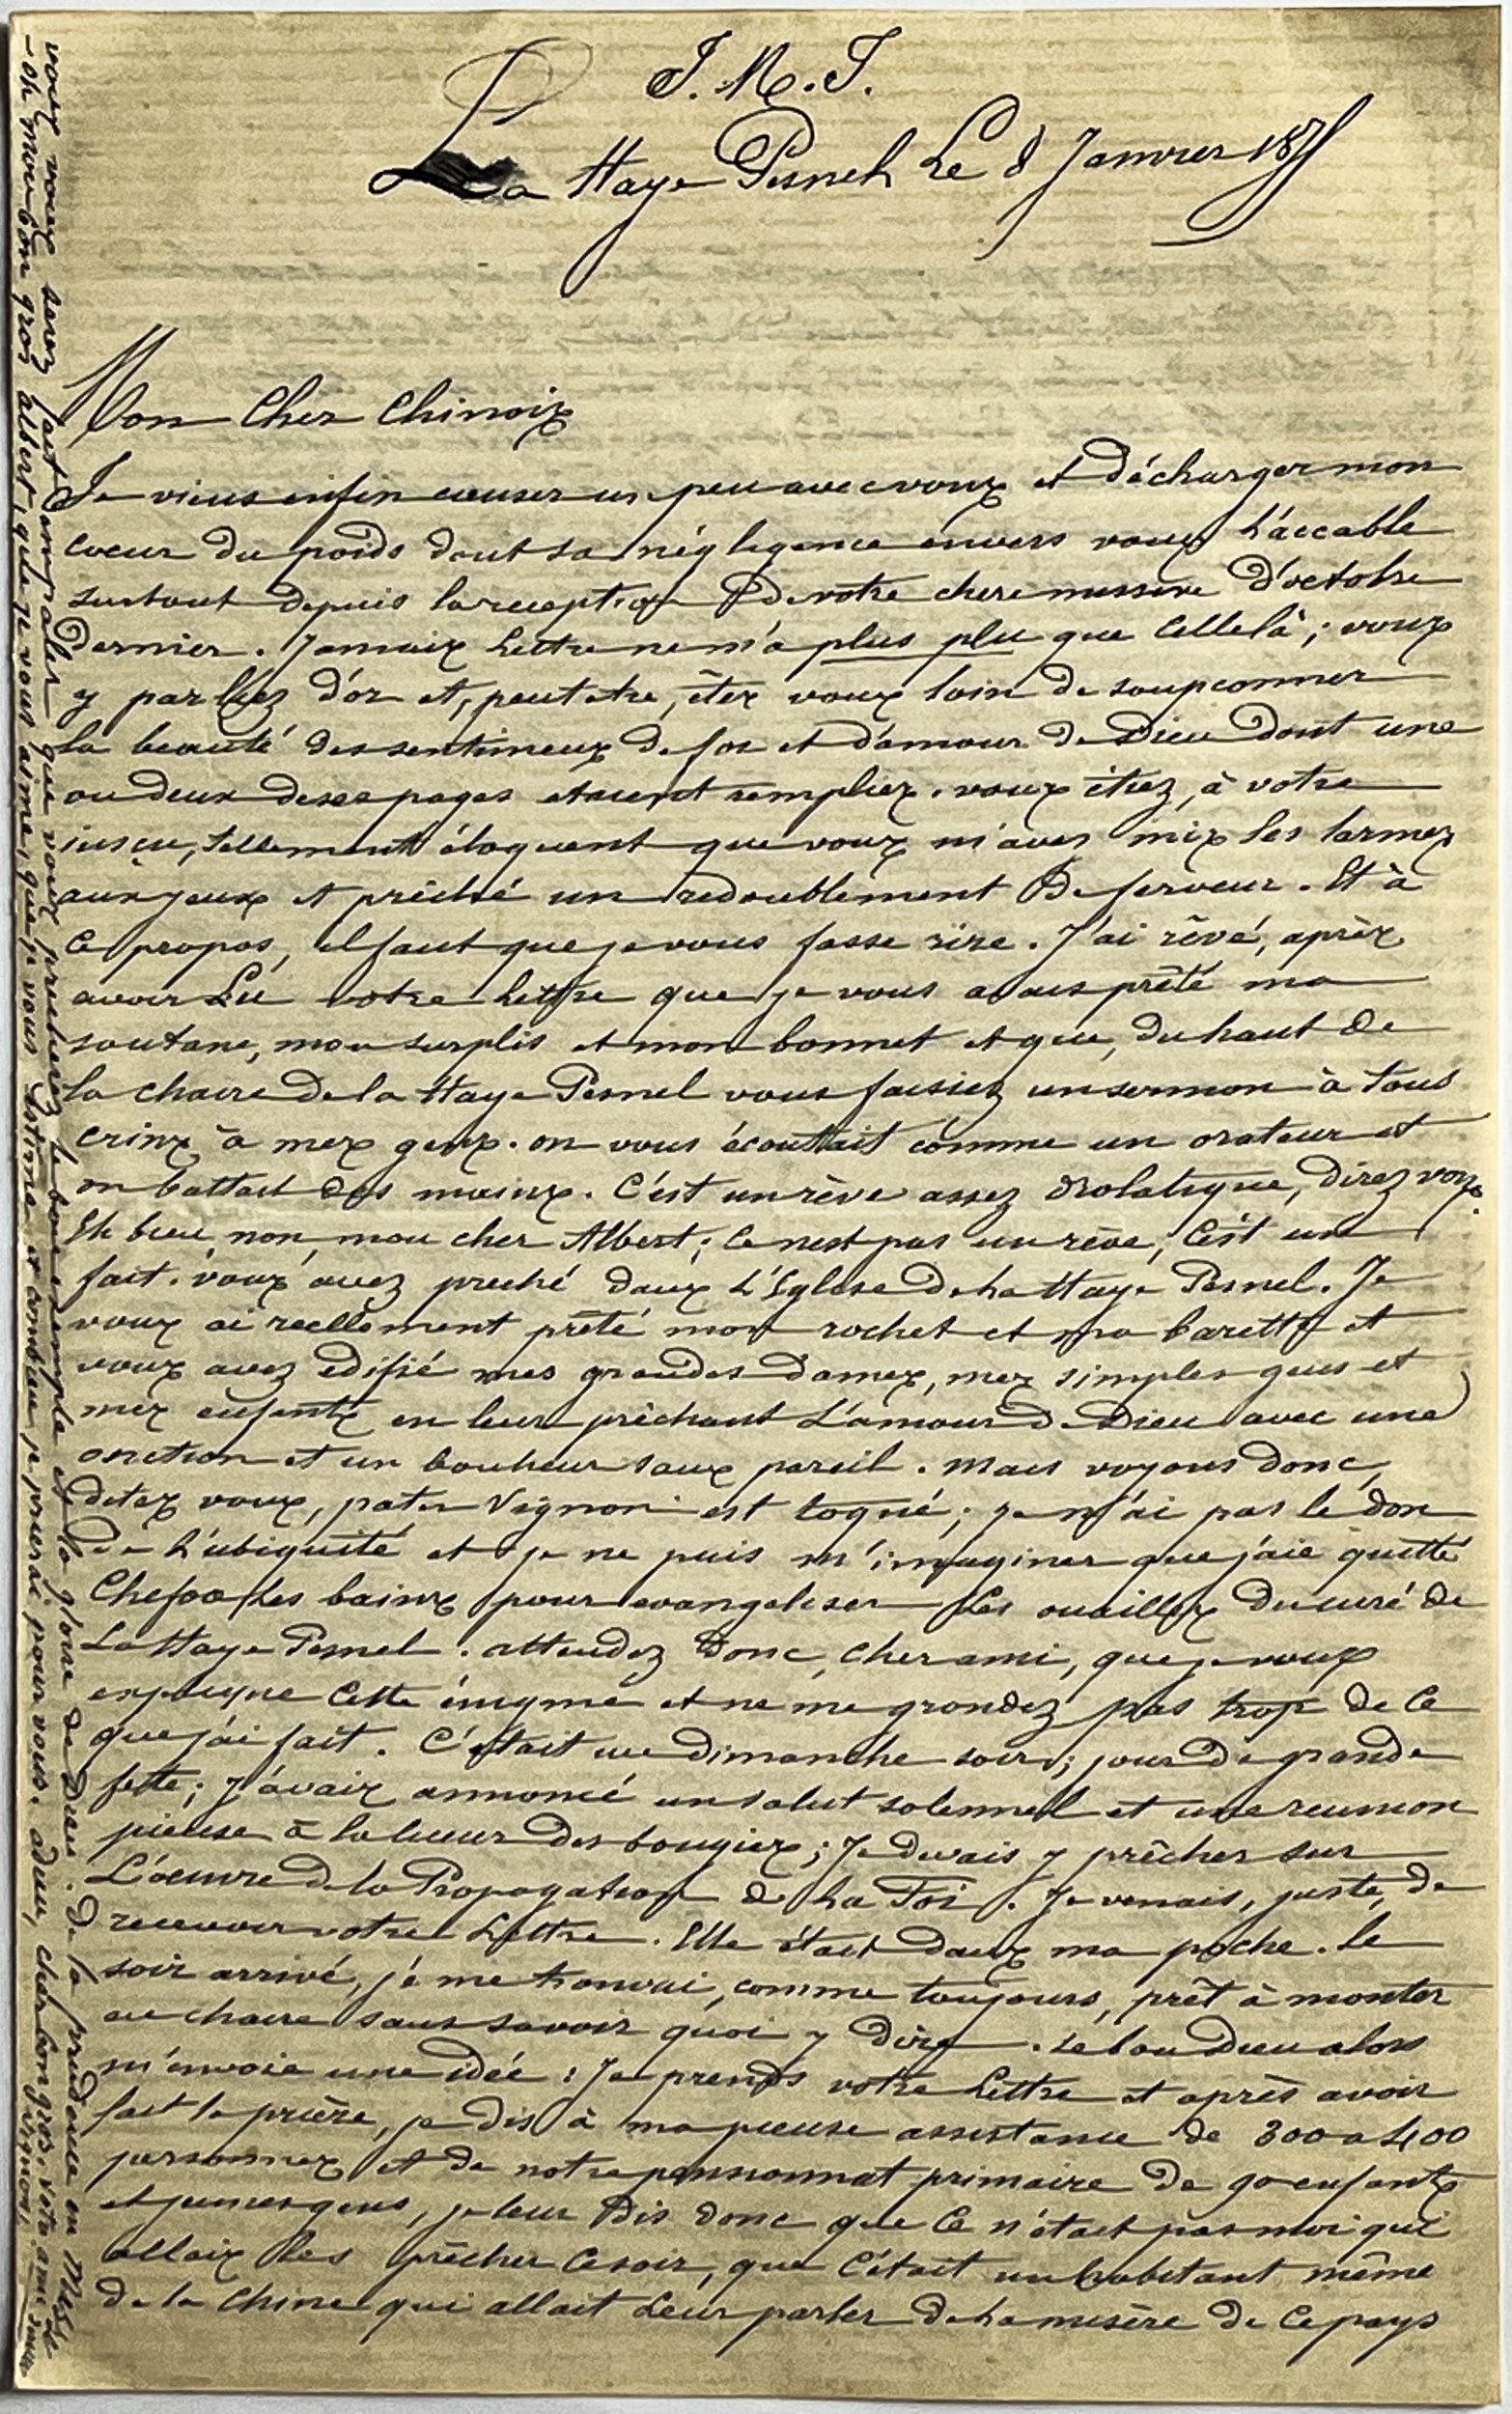 J. M. J.
La Haye Pesnel Le 8 Janvier 187
Mon Cher Chinoix
Je viens enfin causer un peu avec voux et décharger mon
coeur du poids dont sa négligence envers voux l'accable
surtout depuis la reception de votre chere missive d'octobre
Dernier. Jamaix Lettre ne m'a plus plu que Celle là ; voux
y parliez d'or et, peut etre, êtex voux loin de soupconner
la beauté des sentimenx de foi et d'amour de Dieu dont une
ou deux de ses pages etaient rempliex. voux étiez, à votre
insçu, tellement éloquent que voux m'avez mix les larmex
aux yeux et prêché un redoublement de ferveur. Et à
Ce propos, il faut que je vous fasse rire. J'ai rêvé, aprèx
avoir Lu votre Lettre que je vous avais prêté ma
soutane, mon surplis et mon bonnet et que, du haut de
la chaire de la Haye Pesnel vous faisiez un sermon à tous
crinx à mex genx. on vous écoutait comme un orateur et
on battait des mainx. C'est un rève assez drolatique, direz voux.
Eh bien, non, mon cher Albert ; Ce n'est pas un rève, C'est un
fait. voux avez preché danx L'Eglise de La Haye Pesnel. Je
voux ai reellement prêté mon rochet et ma barette et
voux avez edifié mes grandes Damex, mex simples gens et
mex enfantx en leur prêchant L'amour de Dieu avec une
onction et un bonheur sanx pareil. Mais voyons donc,
ditex voux, pater Vignon est toqué ; je n'ai pas le don
de L'ubiquité et je ne puis m'imaginer que j'aie quitté
Chefoo les bainx pour evangeliser Les ouaillex du curé de
La Haye Pesnel. attendez Donc, cher ami, que je voux
expliqne Cette énigme et ne me grondez pas trop de Ce
que j'ai fait. C'était un dimanche soir ; jour de grande
fette ; j'avaix annoncé un salut solennel et une reunion
pieuse à la lueur des bougiex ; Je devais y prêcher sur
L'oeuvre de la Propagation de La Foi. Je venais, juste, de
recevoir votre Lettre. Elle était danx ma poche. le
soir arrivé, je me trouvai, comme toujours, prêt à monter
en chaire sans savoir quoi y dire. Le bon Dieu alors
m'envoie une idée : Je prends votre Lettre et après avoir
fait la prière, je dis à ma pieuse assistance de 300 a 400
personnex et de notre pensionnat primaire de 90 enfantx
et jeunes gens, je leur dis donc que Ce n'était pas moi qui
allaix les prêcher Ce soir, que C'était un habitant même
de la Chine qui allait Leur parler de La misère de Ce pays
voux voux serez fait empaler que voux precherez le bon exemple et la gloire de Dieu. De la prudence
-oh mon bon gros albert, que je vous aime, que je vous estime et combien je prierai pour vous. adieu, cher bon gros. votre ami
Vignon